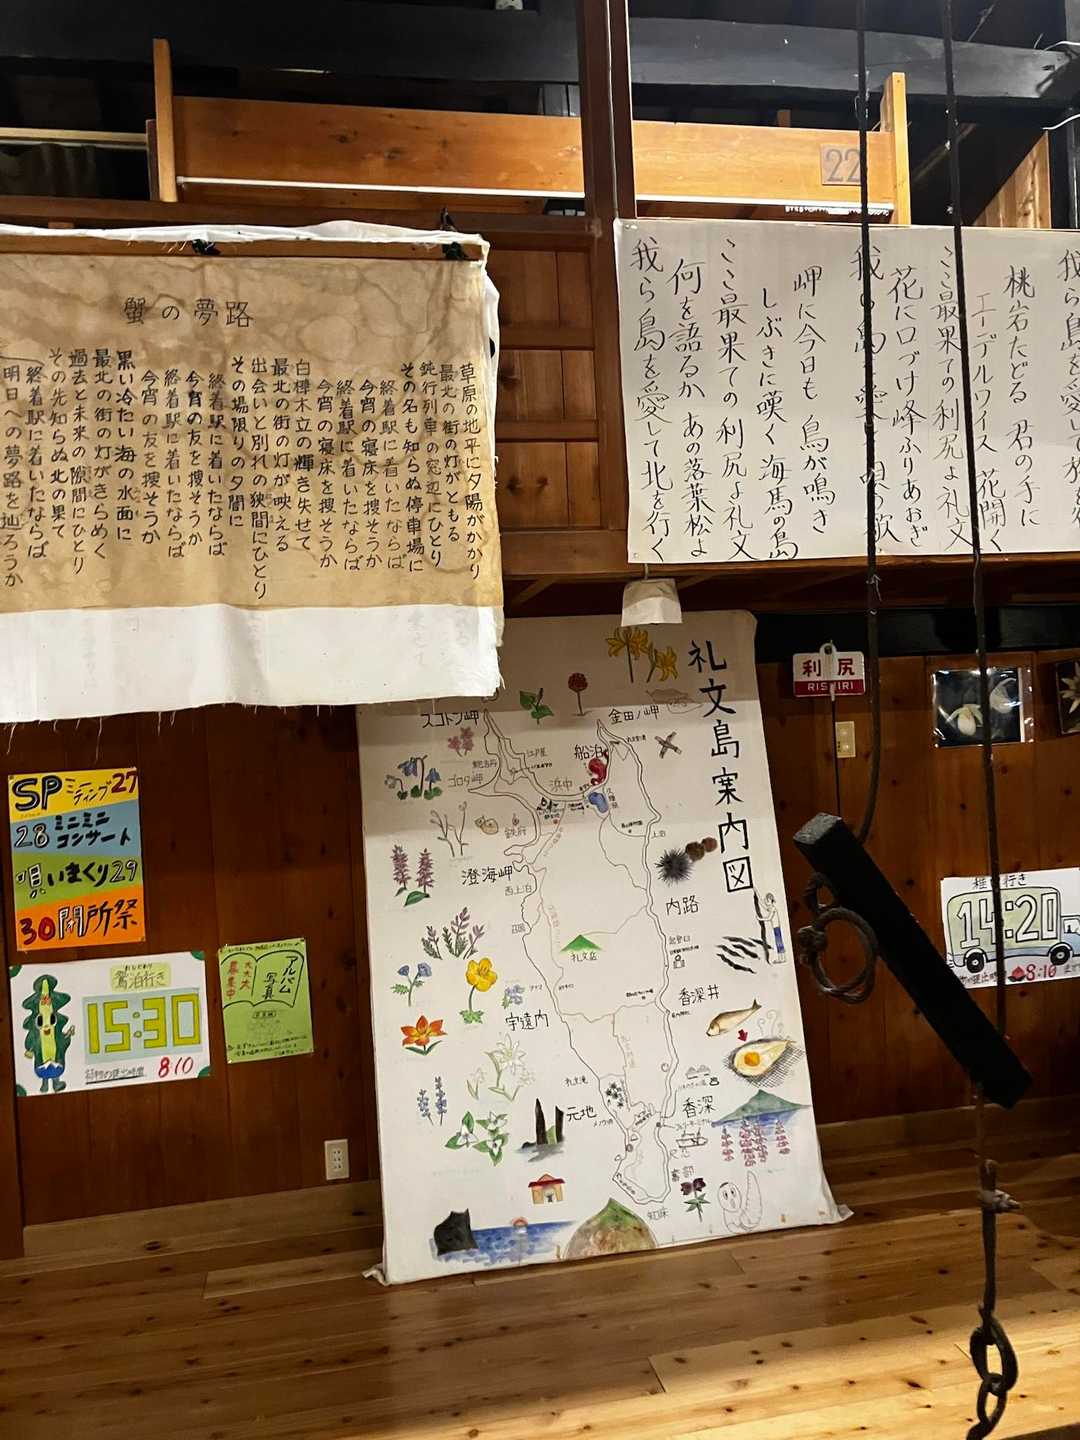 22
蟹の夢路
草原の地平に夕陽がかかり
最北の街の灯がともる
鈍行列車の窓辺にひとり
その名も知らぬ停車場に
終着駅に着いたならば
今宵の寝床を捜そうか
終着駅に着いたならば
今宵の寝床を捜そうか
白樺木立の輝き失せて
最北の街の灯が映える
出会いと別れの狭間にひとり
その場限りの夕間に
終着駅に着いたならば
今宵の友を捜そうか
終着駅に着いたならば
今宵の友を捜そうか
黒い冷たい海の水面に
最北の街の灯がきらめく
過去と未来の隙間にひとり
その先知らぬ北の果て
終着駅に着いたならば
明日への夢路を辿ろうか
桃岩たどる 君の手に
エーデルワイス 花開く
ここ最果ての利尻よ礼文
花に口づけ峰ふりあおぎ
岬に今日も 鳥が鳴き
しぶきに嘆く 海馬の島
ここ最果ての利尻よ礼文
何を語るか あの落葉松よ
我ら島を愛して北を行く
礼文島案内図
スコトン岬
金田ノ岬
江戸屋
船泊
ゴロタ岬
浜中
鉄府
上泊
澄海岬
西上泊
内路
礼文岳
香深井
宇遠内
礼文滝
元地
香深
知床
利尻
RISHIRI
SPミーティング27
28ミニミニコンサート
唄いまくり29
30閉所祭
鴛泊行き
15:30
8:10
アルバム写真
大大大募集中
14:20
8:10